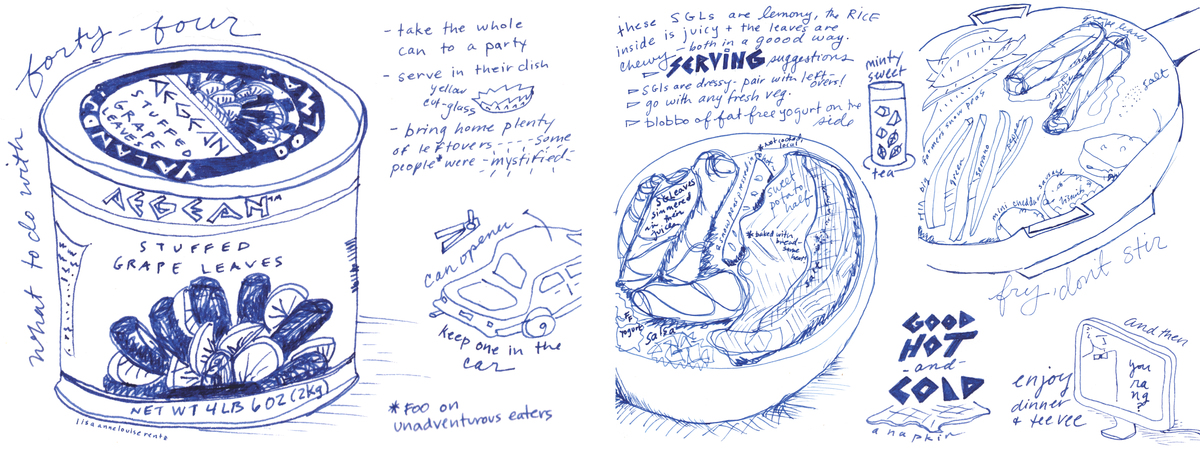 forty-four
what to do with
AEGEAN
STUFFED
GRAPE
LEAVES
YALANCI
AEGEAN™
STUFFED
GRAPE LEAVES
NET WT 4 LB 6 OZ (2Kg)
lisaannelouiserento
- take the whole
can to a party
- serve in their dish
yellow
cut-glass
- bring home plenty
of leftovers ---- some
people* were -mystified-
can opener
keep one in the
car
* FOO on
unadventurous eaters
these SGLs are lemony, the RICE
inside is juicy + the leaves are
chewy - both in a goood way.
SERVING suggestions
SGLs are dressy - pair with left-
overs!
go with any fresh veg.
blobbo of fat-free yogurt on the
side
minty
sweet
tea
SGL leaves
simmered
in their
juices
sweet
potato
half
* baked with
bread-
some
heat
FF
yogurt
salsa
grape leaves
salt
farmers snow peas
big
green
serrano
pepper
mini cheddar
sausage
biscuits
fry, don't stir
GOOD
HOT
-and-
COLD
a napkin
enjoy
dinner
& teevee
and then
you
ra
ng
?